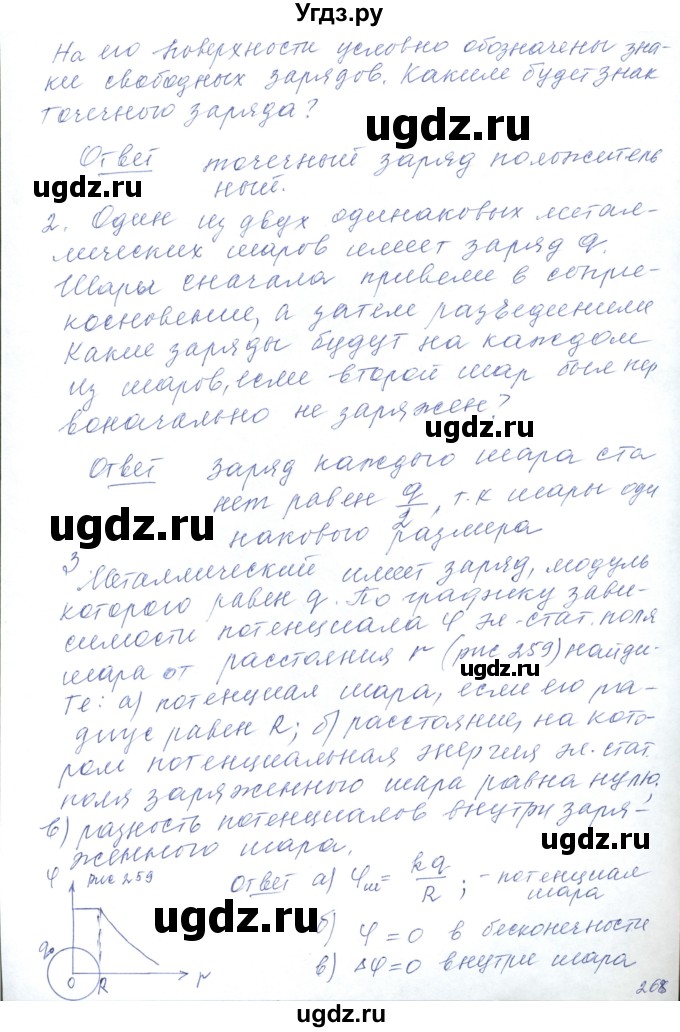 Угдз.ру
На его поверхности условно обозначены зна-
ки свободных зарядов. Каким будет знак
точечного заряда?
ugdz.ru
Ответ точечный заряд положитель
ugdz.ru
ный.
2. Один из двух одинаковых метал-
лических шаров имеет заряд q.
Шары сначала привели в сопри-
косновение, а затем разъединили
Какие заряды будут на каждом
из шаров, если второй шар был пер
воначально не заряжен?
ugdz.ru
Ответ заряд каждого шара ста
нет равен q/2, т.к шары оди
ugdz.ru
накового размера
3
Металлический имеет заряд, модуль
которого равен q. По графику зави-
симости потенциала φ эл-стат. поля
шара от расстояния r (рис 259) найди-
ugdz.ru
те: а) потенциал шара, если его ра-
диус равен R; б) расстояние, на кото-
ром потенциальная энергия эл. стат
поля заряженного шара равна нулю;
в) разность потенциалов внутри заря-
ugdz.ru
женного шара.
φ рис 259 Ответ а) φш = kq/R; - потенциал
шара
ugdz.ru
б) φ = 0 в бесконечности
ugdz.ru
0 R r в) Δφ = 0 внутри шара
268